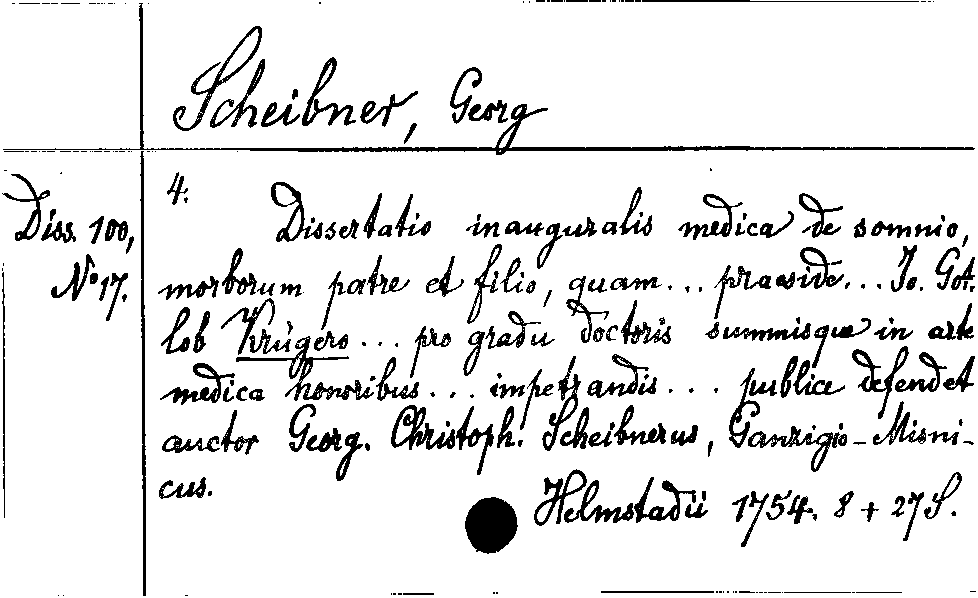 Scheibner, Georg
4.
Diss. 100,
No 17.
Dissertatio inauguralis medica de somnio,
morborum patre et filio, quam... praeside... Jo. Got.
lob Krügero ... pro gradu doctoris summisque in arte
medica honoribus ... impetrandis ... publice defendet
auctor Georg. Christoph. Scheibnerus, Ganzigio-Misni-
cus.
Helmstadii 1754. 8 + 27 S.